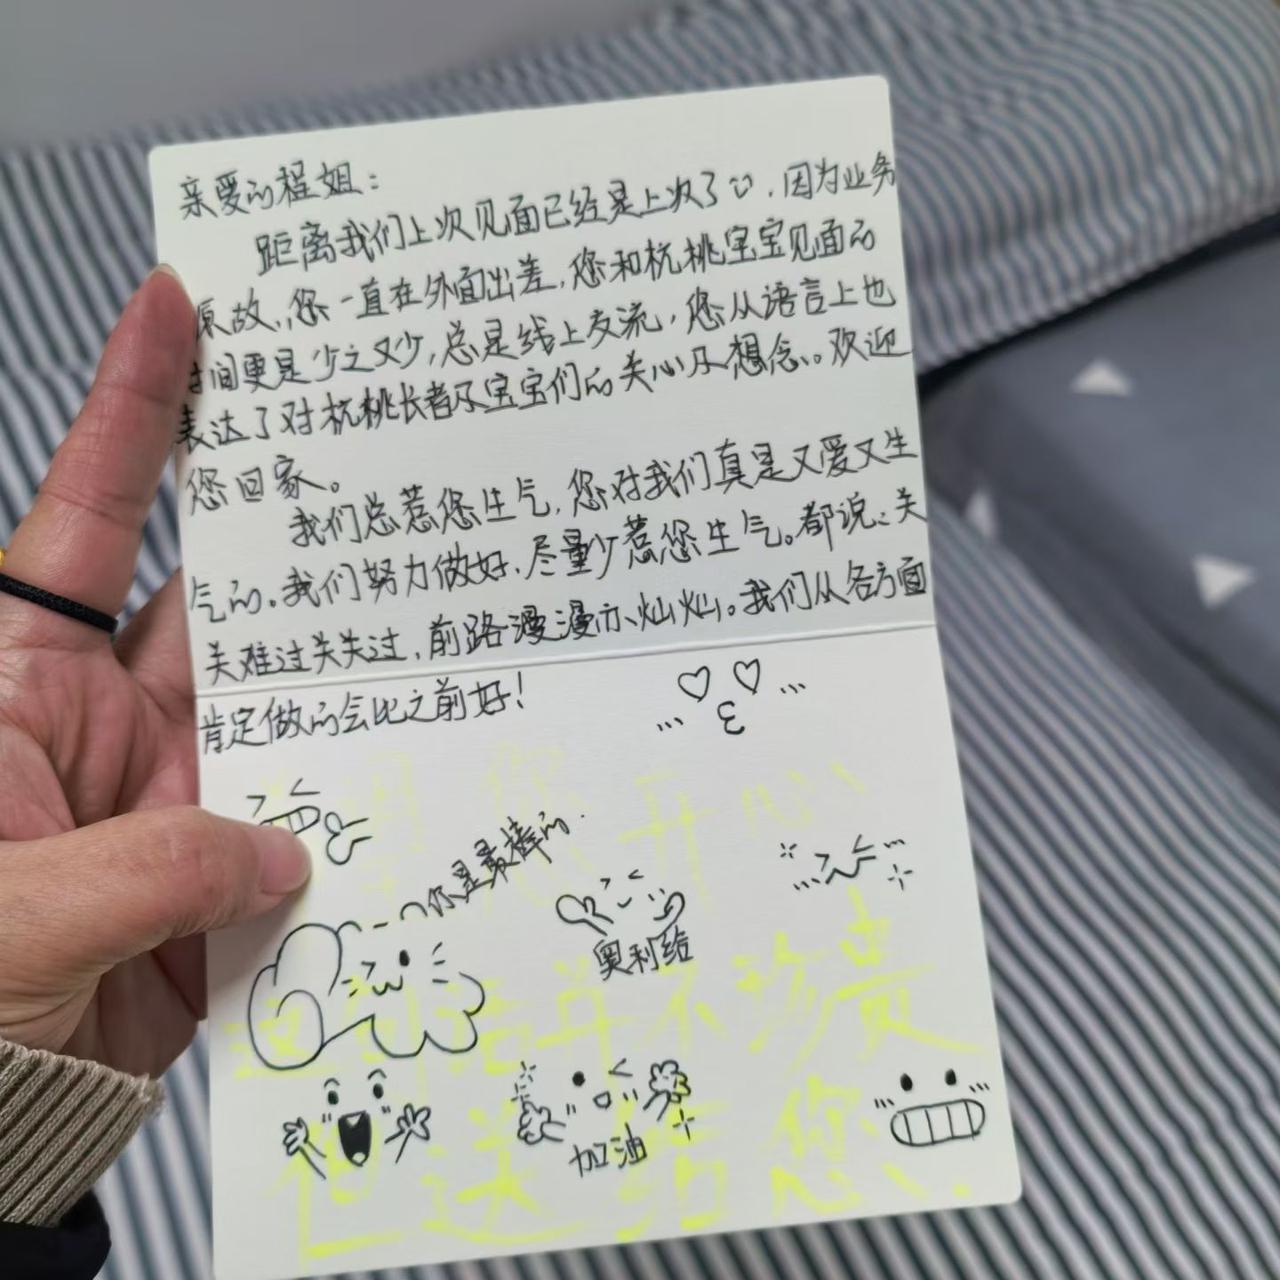 亲爱的程姐：
距离我们上次见面已经是上次了，因为业务
原故，您一直在外面出差，您和杭桃宝宝见面的
时间更是少之又少，总是线上交流，您从语言上也
表达了对杭桃长者及宝宝们的关心及想念。欢迎
您回家。
我们总惹您生气，您对我们真是又爱又生
气的。我们努力做好，尽量少惹您生气。都说：关
关难过关关过，前路漫漫亦灿灿。我们从各方面
肯定做的会比之前好！
您开心
你是最棒的.
奥利给
这句话并不珍贵
加油
但送给您.